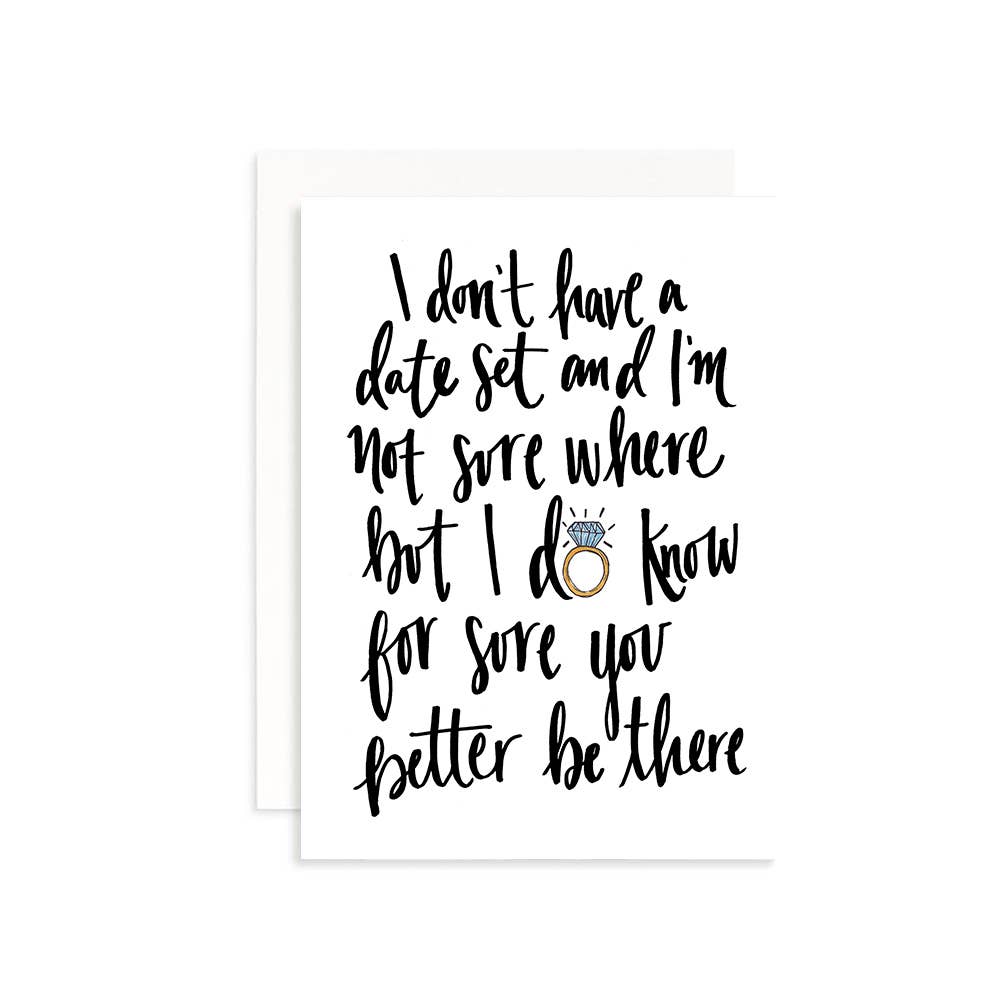 I don't have a
date set and I'm
not sure where
but I do know
for sure you
better be there